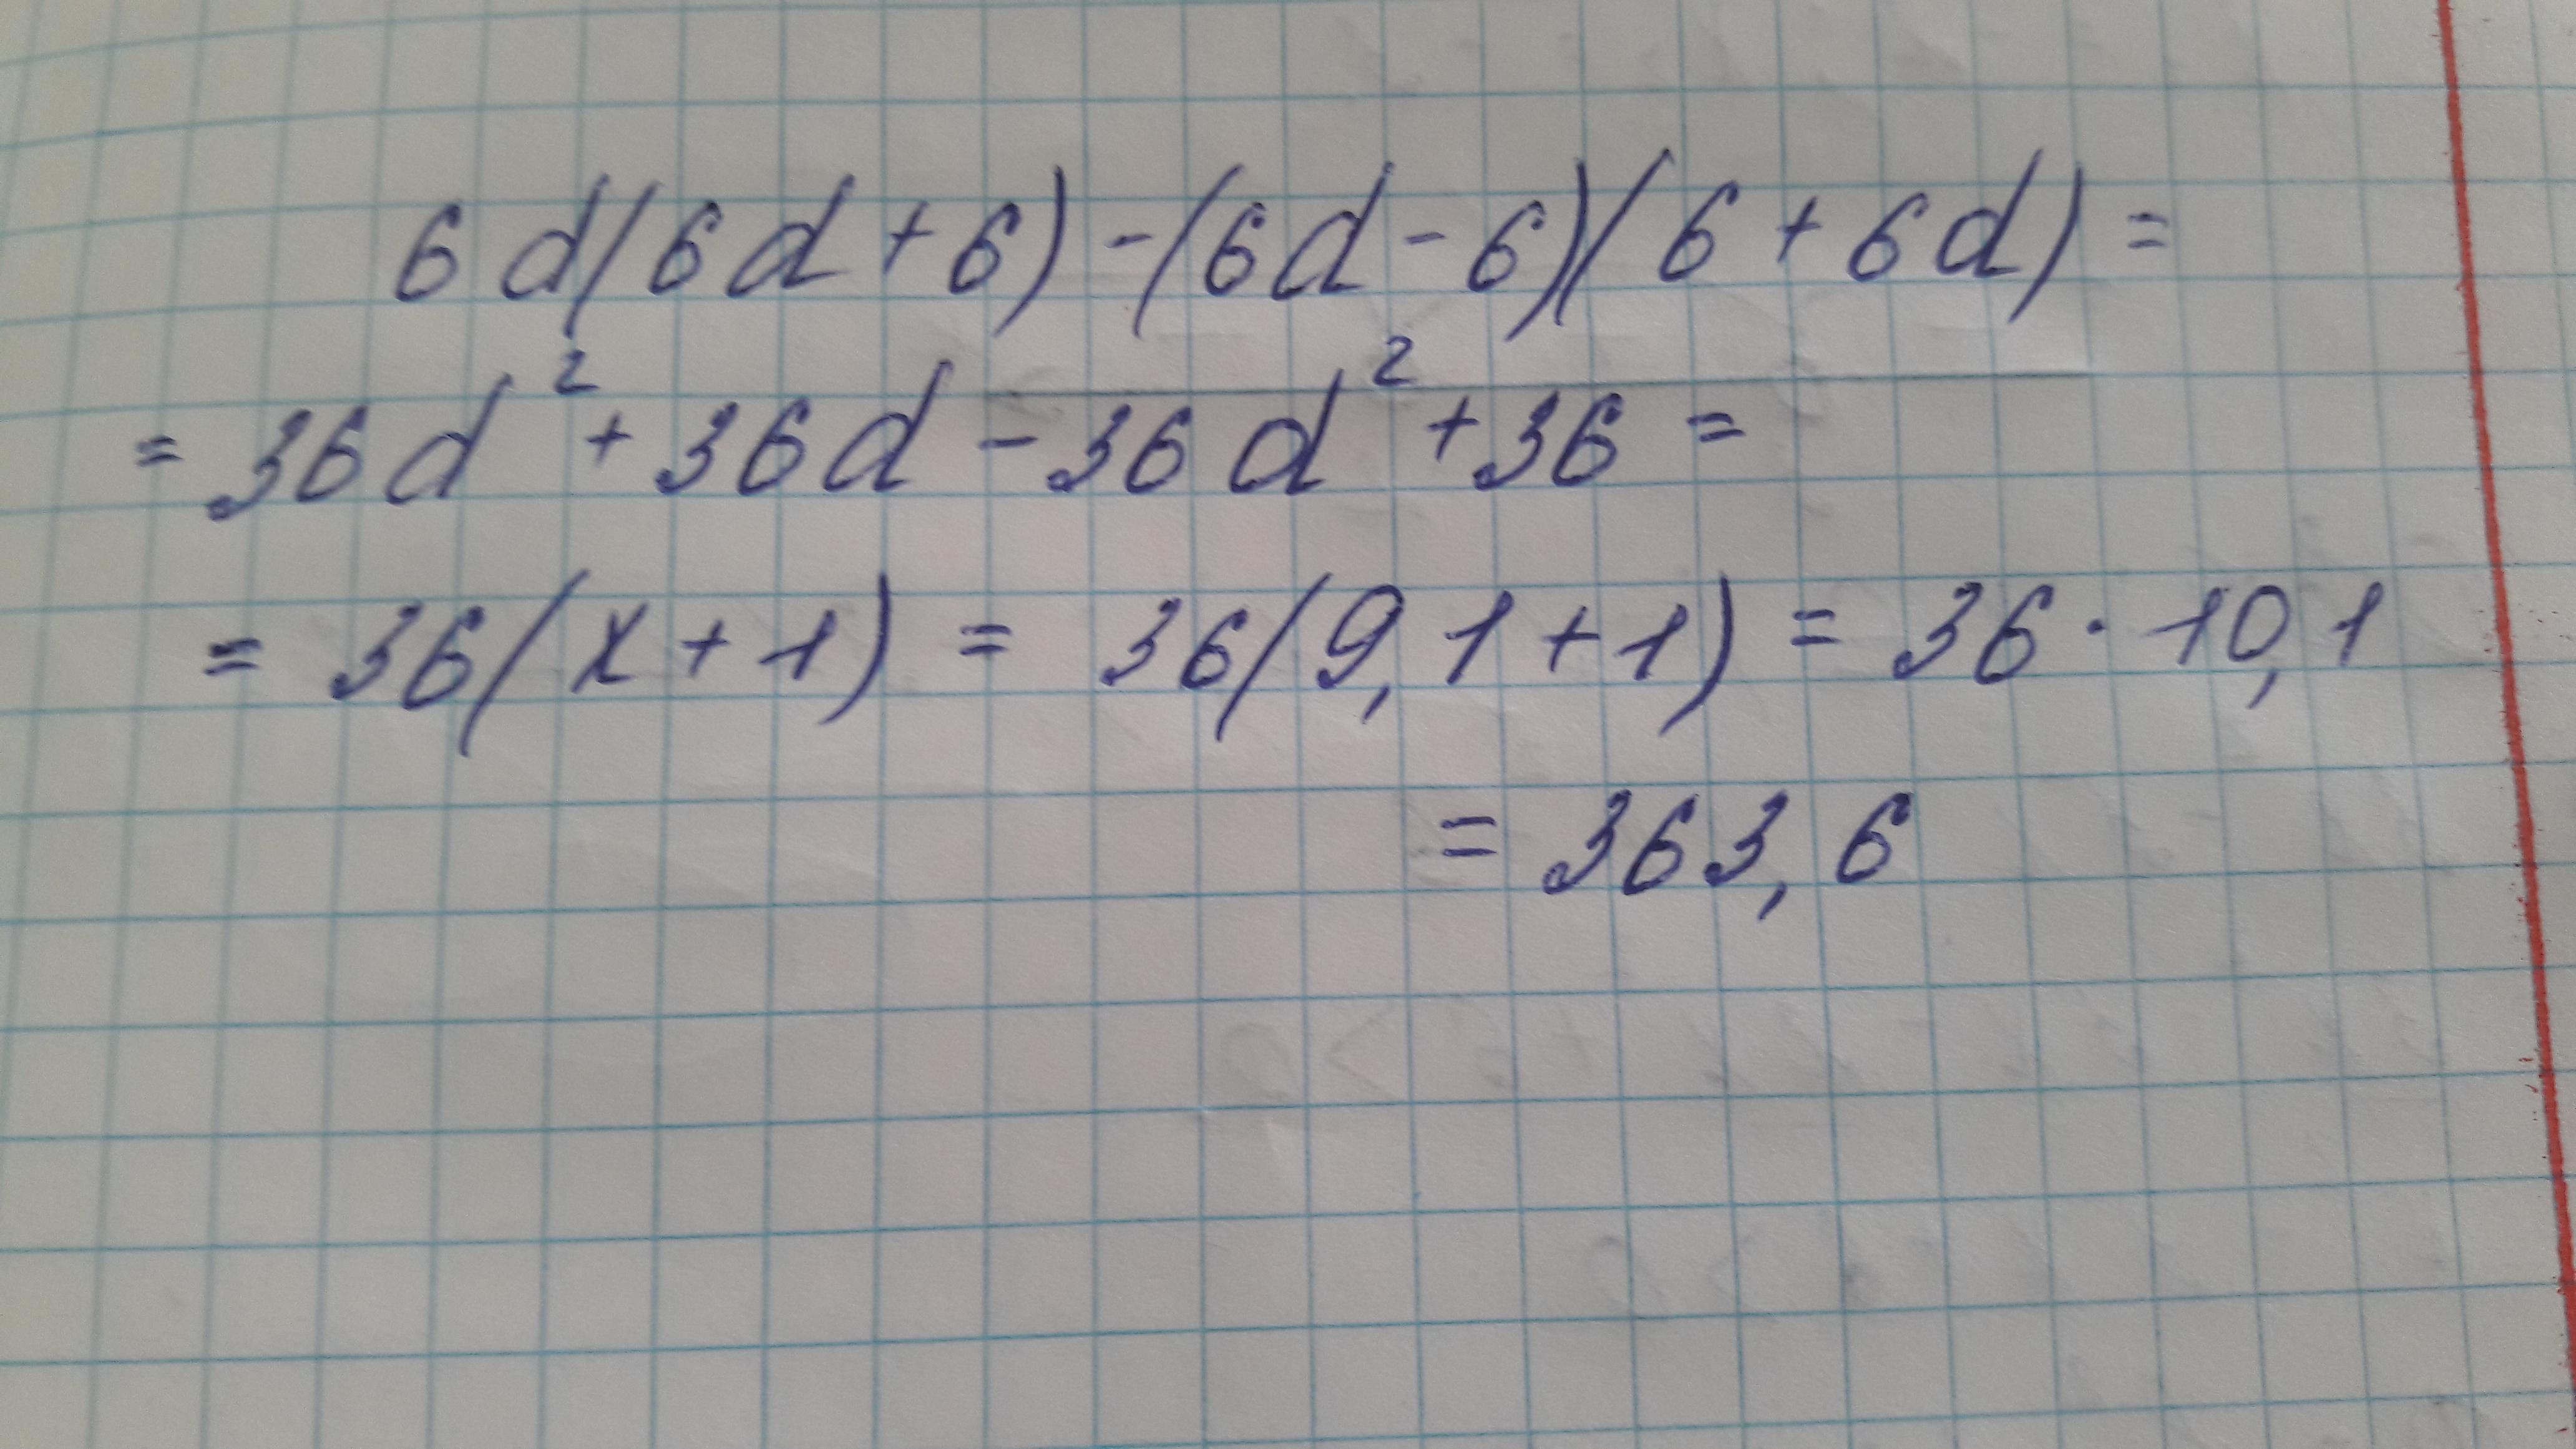 6d(6d+6)-(6d-6)(6+6d)=
=36d²+36d-36d²+36=
=36(x+1)=36(9,1+1)=36·10,1
=363,6